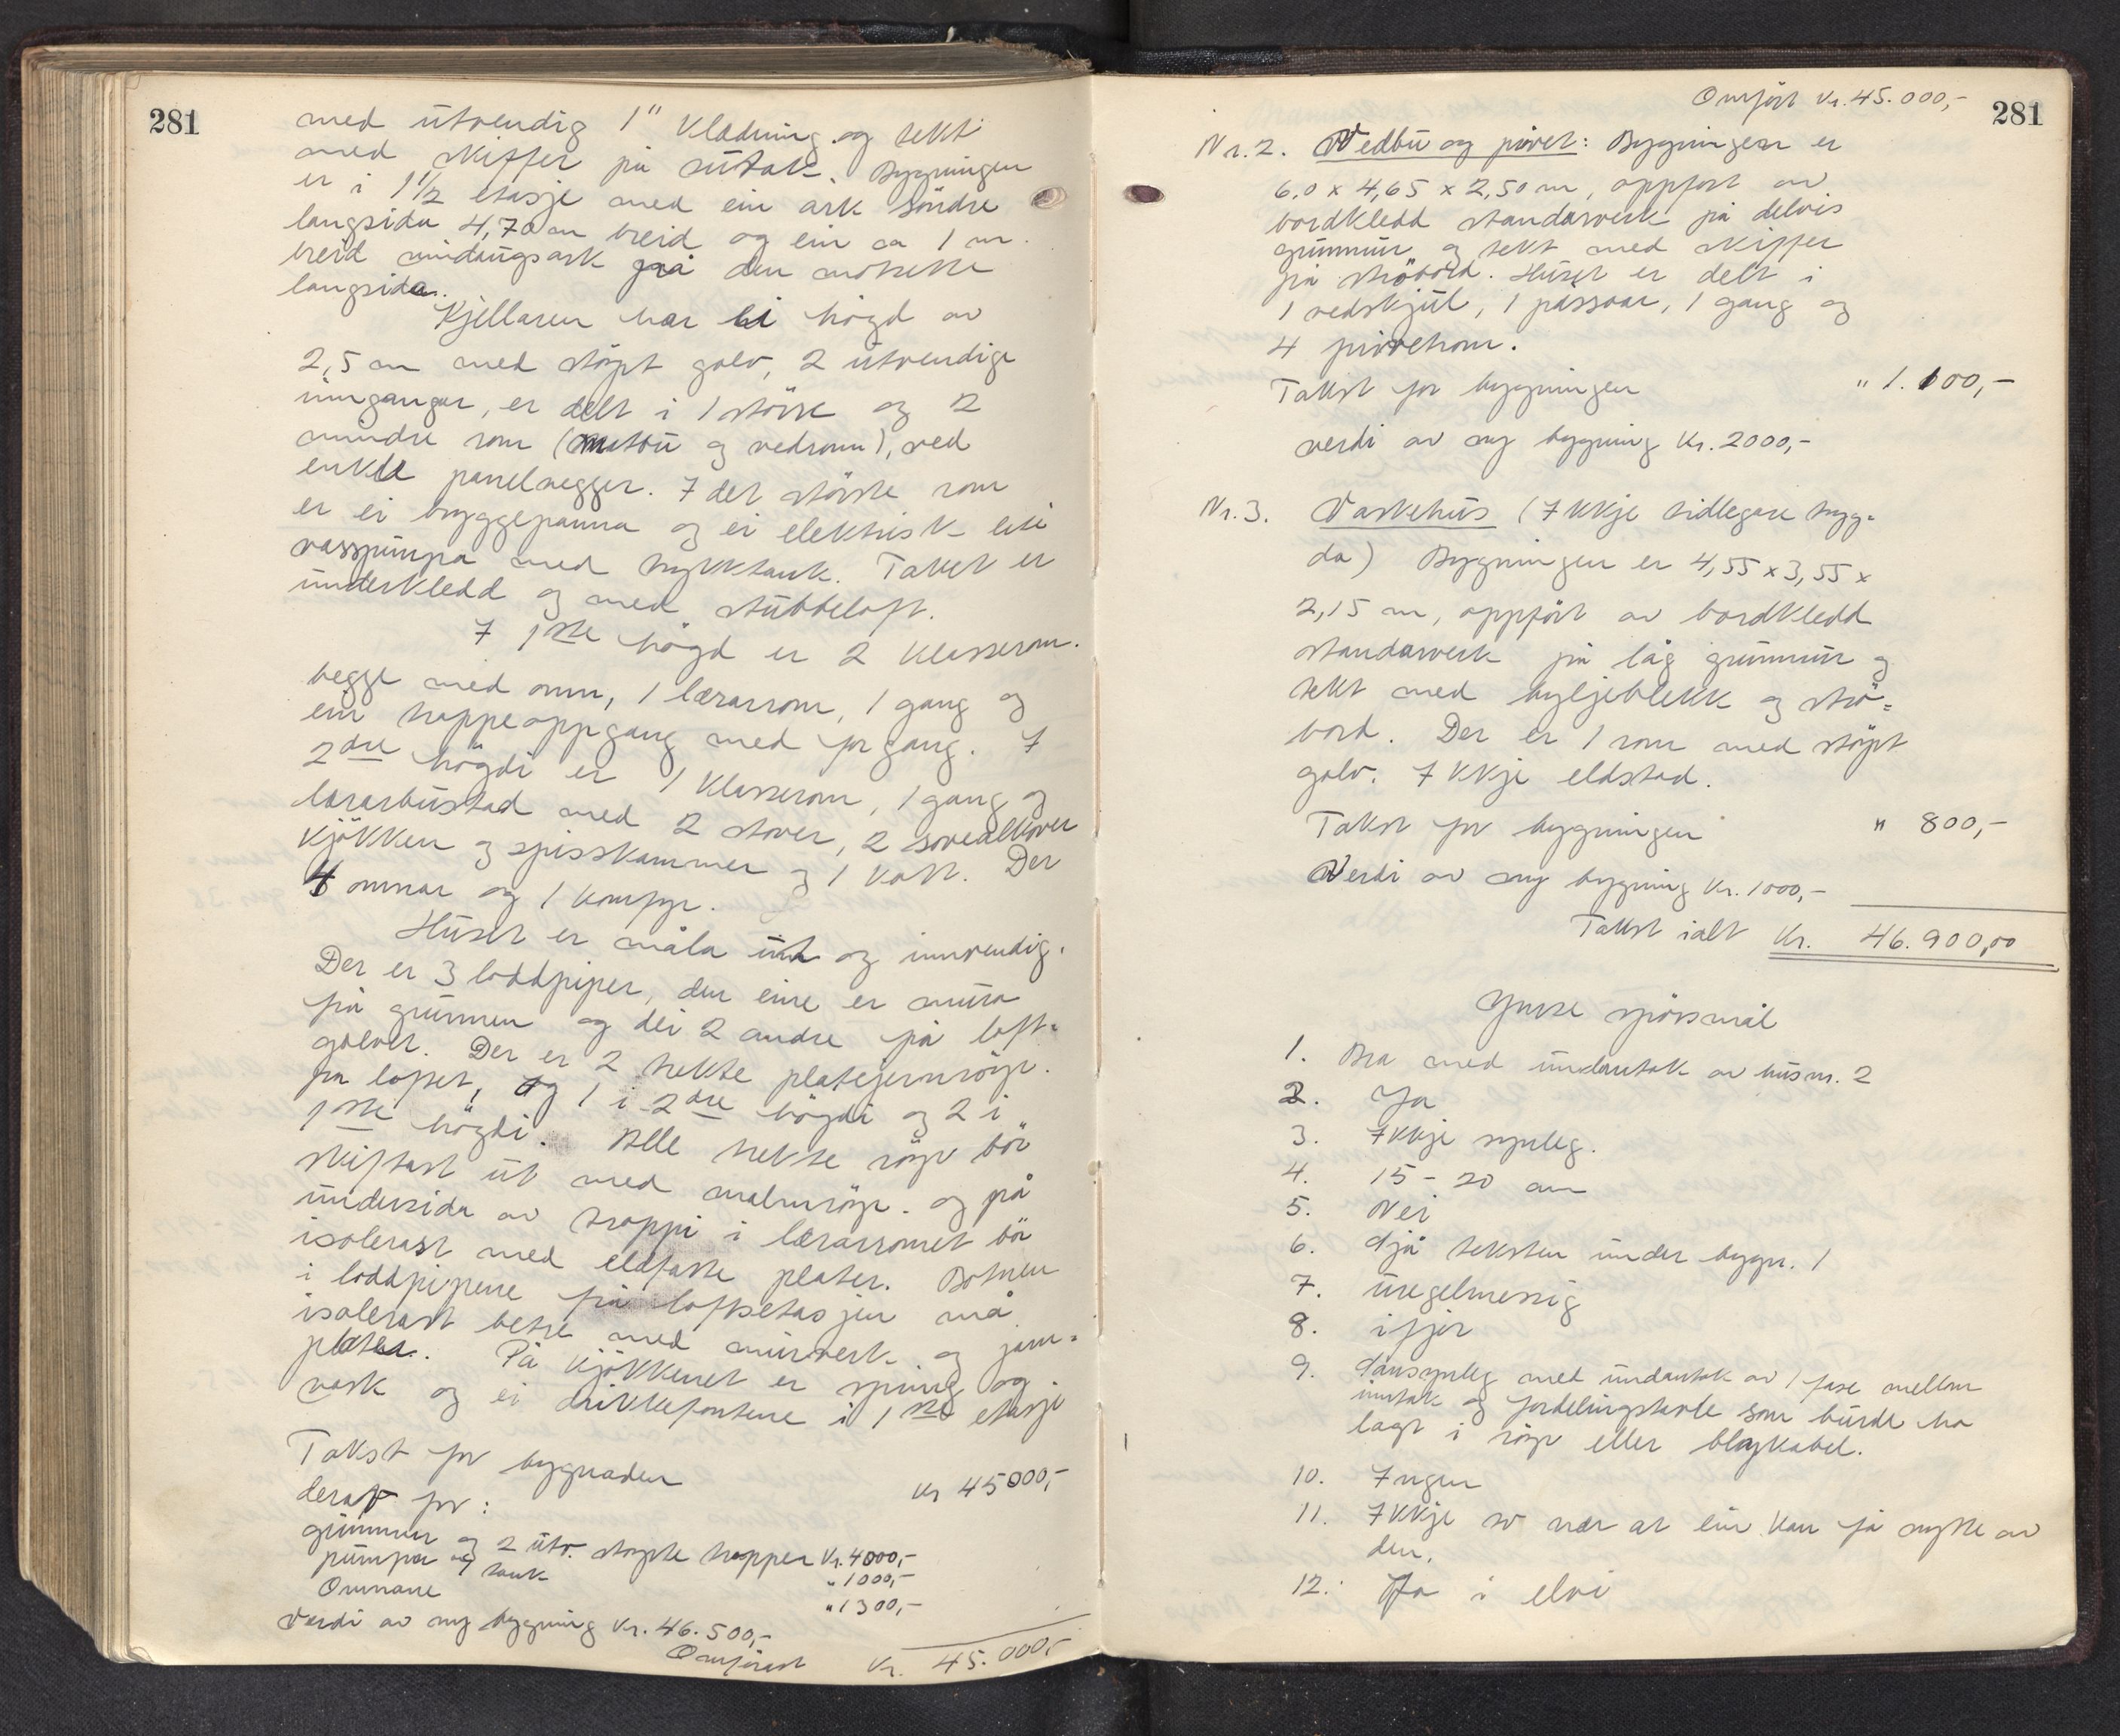 281
med utvendig 1" Klædning og tekt
med skiffer på sutak. Bygningen
er i 1 1/2 etasje med ein ark söndre
langsida 4,70 m breid og ein ca 1 m.
breid midtúngsark på den motsette
langsida.
Kjellaren har ei högd av
2,5 m med stöypt golv, 2 utvendige
inngangar, er delt i 1 större og 2
mindre rom (matbu og vedrom), ved
enkle panelvegger. I det störste rom
er ei bryggepanna og ei elektrisk
vasspumpa med trykktank. Taket er
underkledd og med stubbeloft.
I 1ste högd er 2 klasserom.
begge med omn, 1 lærarrom, 1 gang og
ein trappeoppgang med forgang. I
2dre högdi er 1 Klasserom, 1 gang og
lærarbustad med 2 stover, 2 sovealkover
Kjökken og spisskammer og 1 kott. Der
4 omnar og 1 komfyr.
Huset er måla ut og innvendig.
Der er 3 loddpiper, den eine er mura
frå grunnen og dei 2 andre på loft-
golvet. Der er 2 trekte platejernröyr.
på loftet, og 1 i 2dre högdi og 2 i
1ste högdi. Alle trekte röyr bör
skiftast ut med malmröyr. og på
undersida av trappi i lærarromet bör
isolerast med eldfaste plater. Botnen
i loddpipene frå loftsetasjen må
isolerast betre med murverk og jarn-
plater. På Kjökkenet er spring og
vask og ei drikkefontene i 1ste etasje
Takst for bygnaden kr 45000,-
derav for:
grunnmur og 2 utv. stöypte trapper Kr. 4000,-
pumpa og tank " 1000,-
Omnane " 1300,-
Verdi av ny bygning Kr. 46.500,-
Omförast Kr. 45.000,-
Omfört Kr. 45.000,-
281
Nr. 2. Vedbu og privet: Bygningen er
6,0 x 4,65 x 2,50 m, oppfört av
bordkledd standarverk på delvis
grunnmur og tekt med skiffer
på ströbord. Huset er delt i
1 vedskjul, 1 pissoar, 1 gang og
4 privetrom.
Takst for bygningen " 1.100,-
verdi av ny bygning Kr. 2000,-
Nr. 3. Vaskehus (Ikkje tidlegare tryg-
da) Bygningen er 4,55 x 3,55 x
2,15 m, oppfört av bordkledd
standarverk på låg grunnmur og
tekt med bylgjeblekk og strö-
bord. Der er 1 rom med stöypt
golv. Ikkje eldstad.
Takst for bygningen " 800,-
Verdi av ny bygning Kr. 1000,-
Takst ialt Kr. 46.900,00
Ymse spörsmål
1. Bra med undantak av hus nr. 2
2. Ja
3. Ikkje synleg.
4. 15 - 20 m
5. Nei
6. Sjå teksten under bygn. 1
7. uregelmessig
8. i fjor
9. Sansynleg med undantak av 1 fase mellom
inntak og fordelingstavle som burde ha
lagt i röyr eller blykabel.
10. Ingen
11. Ikkje so nær at ein kan få nytte av
den.
12. Ja i elvi